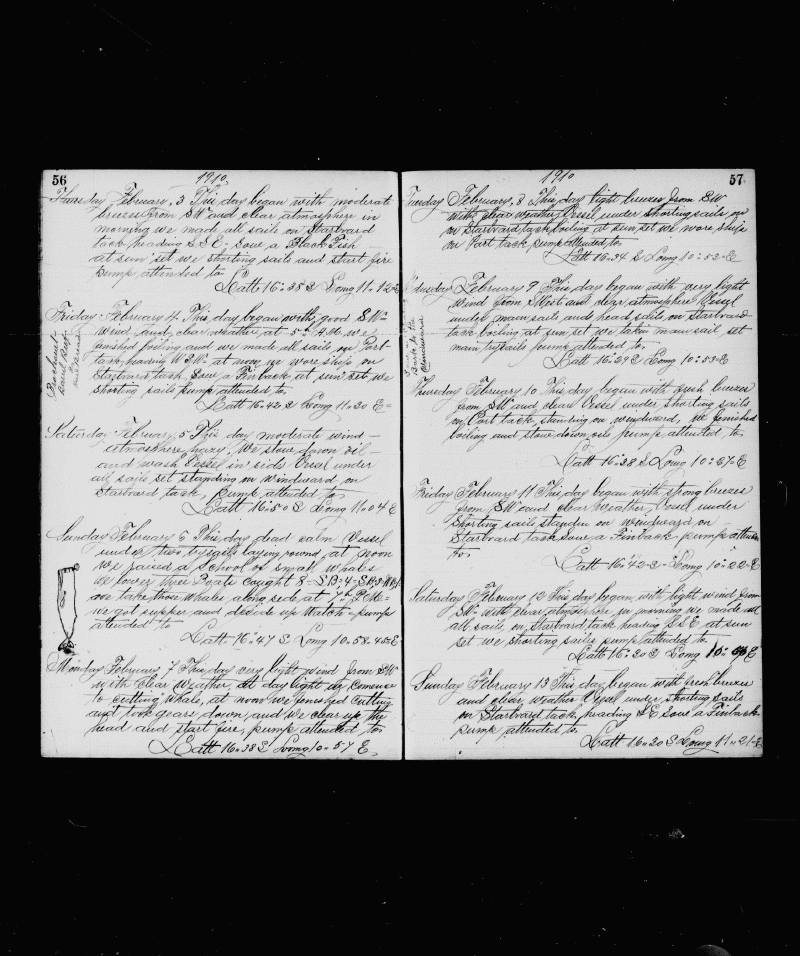 56
1910
Thursday February, 3 This day began with moderate
breezes from SW and clear atmosphere in
morning we made all sails on Starboard
tack heading S S E; Saw a Black Fish
at sun set we shorting sails and start fire
pump attended to
Latt 16"35 S Long 11"12 E
Friday February 4, This day began with good SW
wind And clear weather, at 5 A.M. we
finished boiling and we made all sails on Port
tack, heading W S W at noon we wore ship on
Starboard tack, Saw a Finback, at sun set, we
shorting sails pump attended to
Latt 16"42 S Long 11"20 E=
Barrel Beef
Saturday February, 5 This day moderate wind
atmosphere hazy. We stove down oil
and wash Vessel in side Vessel under
all sails set standing on windward on
Starboard tack, pump attended to
Latt 16"50 S Long 11"04 E
Sunday February 6 This day dead calm Vessel
under two laying round, at noon
we raised a School of small whales
We lower three Boats Caught 8
we take those Whales along side at 7 P.M=
we got supper and decide up Watch=pump
attended to
Latt 16"47 S Long 10=58=45=E
Monday February, 7 This day very light wind from SW
with clear Weather, at day light we comence
to Cutting Whale, at noon we finished Cutting
and took gears down, and we clear up the
head and start fire, pump attended to
Latt 16"38 S Long 10=57 E,
57
1910
Tuesday February, 8 This day light breezes from SW
with clear weather, Vessel under shorting sails on
on Starboard tack, boiling at sun set we wore ship
on Port tack pump attended to
Latt 16"34 S Long 10:53-E
Wednesday February 9 This day began with very light
wind from S West and clear atmosphere Vessel
under main sails and head sails, on Starboard
tack boiling at sun set we taken main sail, set
main trysails pump attended to
Latt 16"29 S Long 10:53-E
Bark to the
Thursday February 10 This day began with fresh breezes
from SW and clear Vessel under shorting sails
on Port tack, standing on windward, we finished
boiling and stove down oils pump attended to
Latt 16"38 S Long 10:37 E
Friday February 11 This day began with strong breezes
from SW and clear Weather, Vessel under
shorting sails standen on windward on
Starboard tack saw a Finback pump attended
to
Latt-16"42-S-Long 10"22-E
Saturday February 12 This day began with light wind from
SW with clear atmosphere, in morning we made all
all sails on Starboard tack heading S S E at sun
set we shorting sails pump attended to
Latt 16"20 S Long 10:
Sunday February 13 This day began with fresh breezes
and clear weather Vessel under shorting sails
on Starboard tack, heading S E saw a Finback
pump attended to
Latt 16"30 S Long 11"21-E